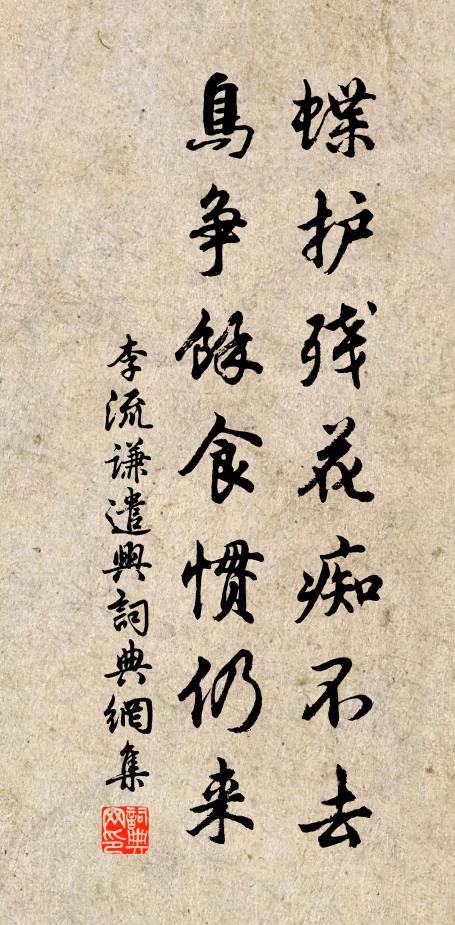 蝶护残花痴不去
鳥争餘食慣仍来
李流谦遣興詞典網集
詞典網印